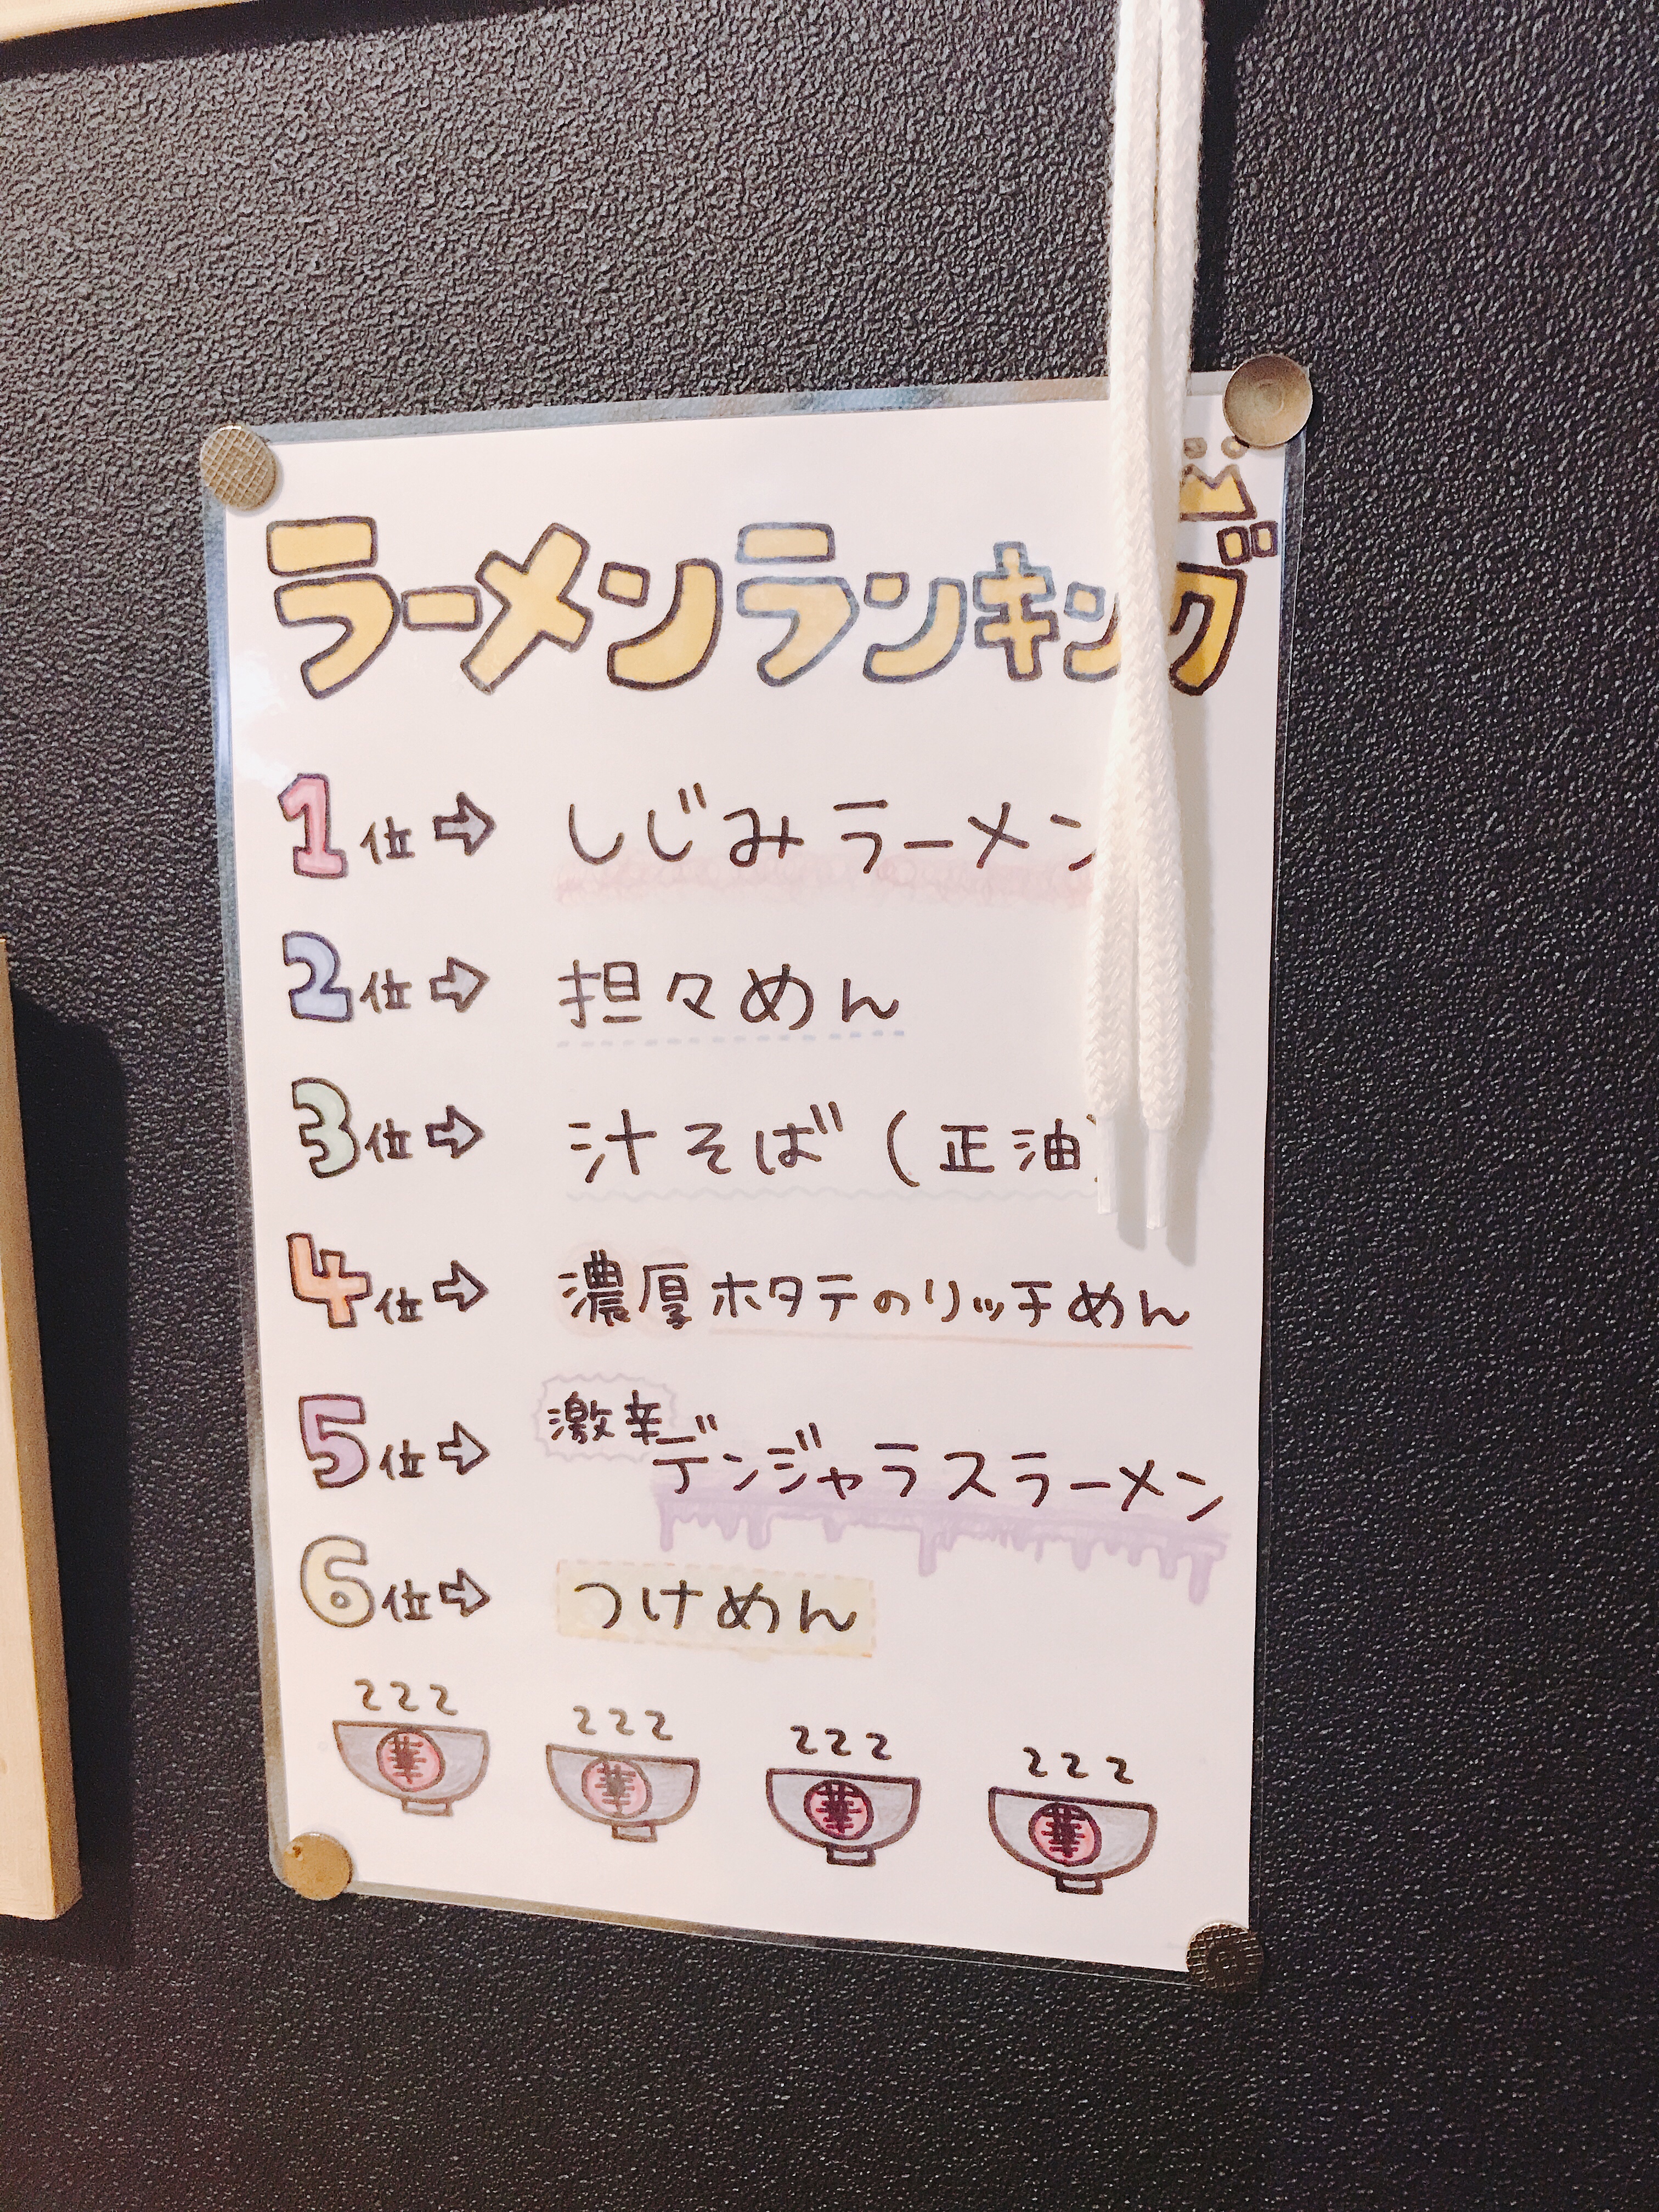 ラーメンランキング
1位⇨ しじみラーメン
2位⇨ 担々めん
3位⇨ 汁そば(正油)
4位⇨ 濃厚ホタテのリッチめん
5位⇨ 激辛デンジャラスラーメン
6位⇨ つけめん
華 華 華 華